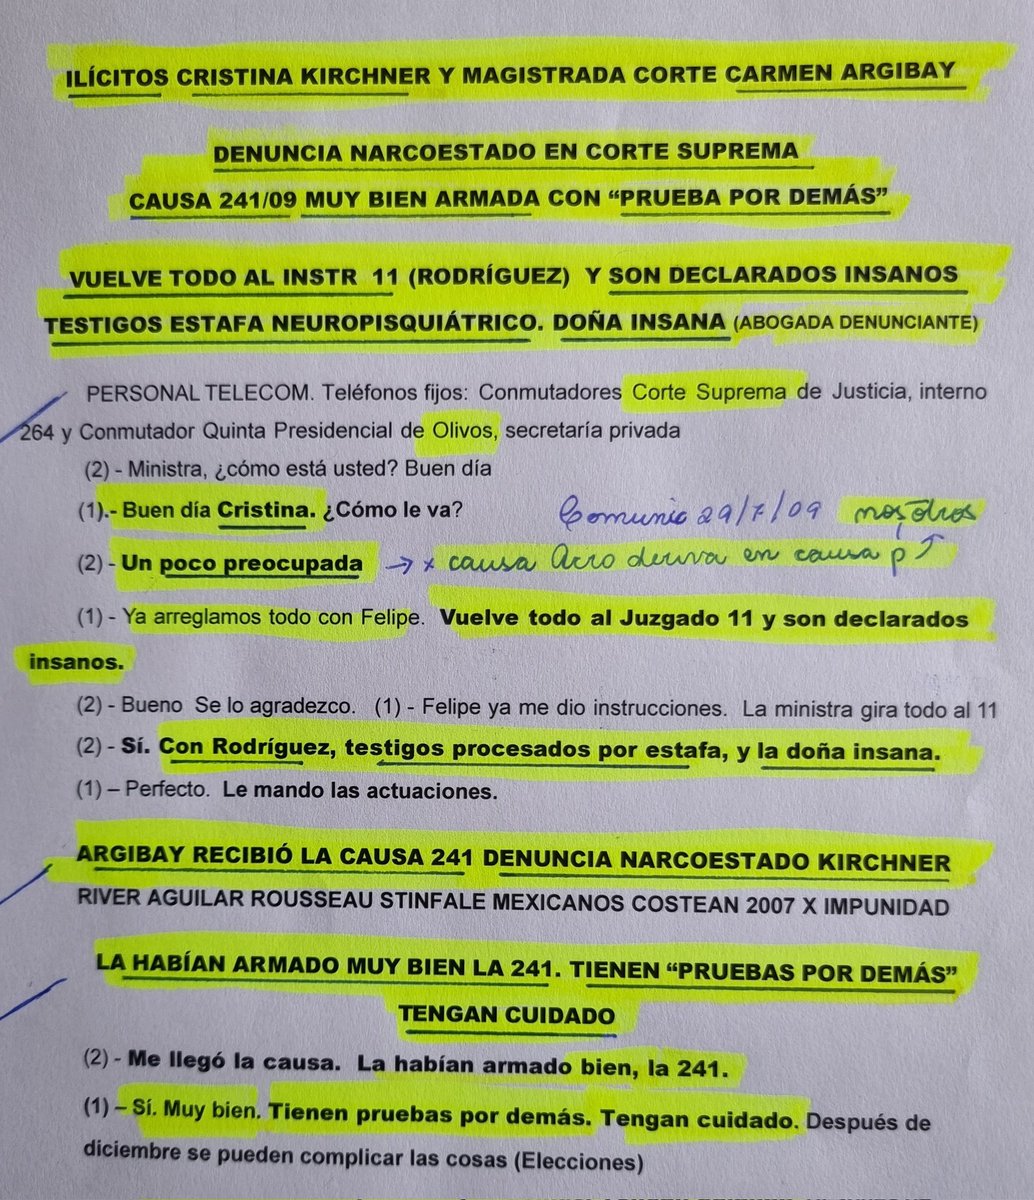 ILÍCITOS CRISTINA KIRCHNER Y MAGISTRADA CORTE CARMEN ARGIBAY
DENUNCIA NARCOESTADO EN CORTE SUPREMA
CAUSA 241/09 MUY BIEN ARMADA CON “PRUEBA POR DEMÁS”
VUELVE TODO AL INSTR 11 (RODRÍGUEZ) Y SON DECLARADOS INSANOS
TESTIGOS ESTAFA NEUROPISQUIÁTRICO. DOÑA INSANA (ABOGADA DENUNCIANTE)
PERSONAL TELECOM. Teléfonos fijos: Conmutadores Corte Suprema de Justicia, interno
264 y Conmutador Quinta Presidencial de Olivos, secretaría privada
(2) - Ministra, ¿cómo está usted? Buen día
(1).- Buen día Cristina. ¿Cómo le va? Comunic 29/7/09 nosotros
(2) - Un poco preocupada → x causa Acro deriva en causa p ↑
(1) - Ya arreglamos todo con Felipe. Vuelve todo al Juzgado 11 y son declarados
insanos.
(2) - Bueno Se lo agradezco. (1) - Felipe ya me dio instrucciones. La ministra gira todo al 11
(2) - Sí. Con Rodríguez, testigos procesados por estafa, y la doña insana.
(1) – Perfecto. Le mando las actuaciones.
ARGIBAY RECIBIÓ LA CAUSA 241 DENUNCIA NARCOESTADO KIRCHNER
RIVER AGUILAR ROUSSEAU STINFALE MEXICANOS COSTEAN 2007 X IMPUNIDAD
LA HABÍAN ARMADO MUY BIEN LA 241. TIENEN “PRUEBAS POR DEMÁS”
TENGAN CUIDADO
(2) - Me llegó la causa. La habían armado bien, la 241.
(1) – Sí. Muy bien. Tienen pruebas por demás. Tengan cuidado. Después de
diciembre se pueden complicar las cosas (Elecciones)